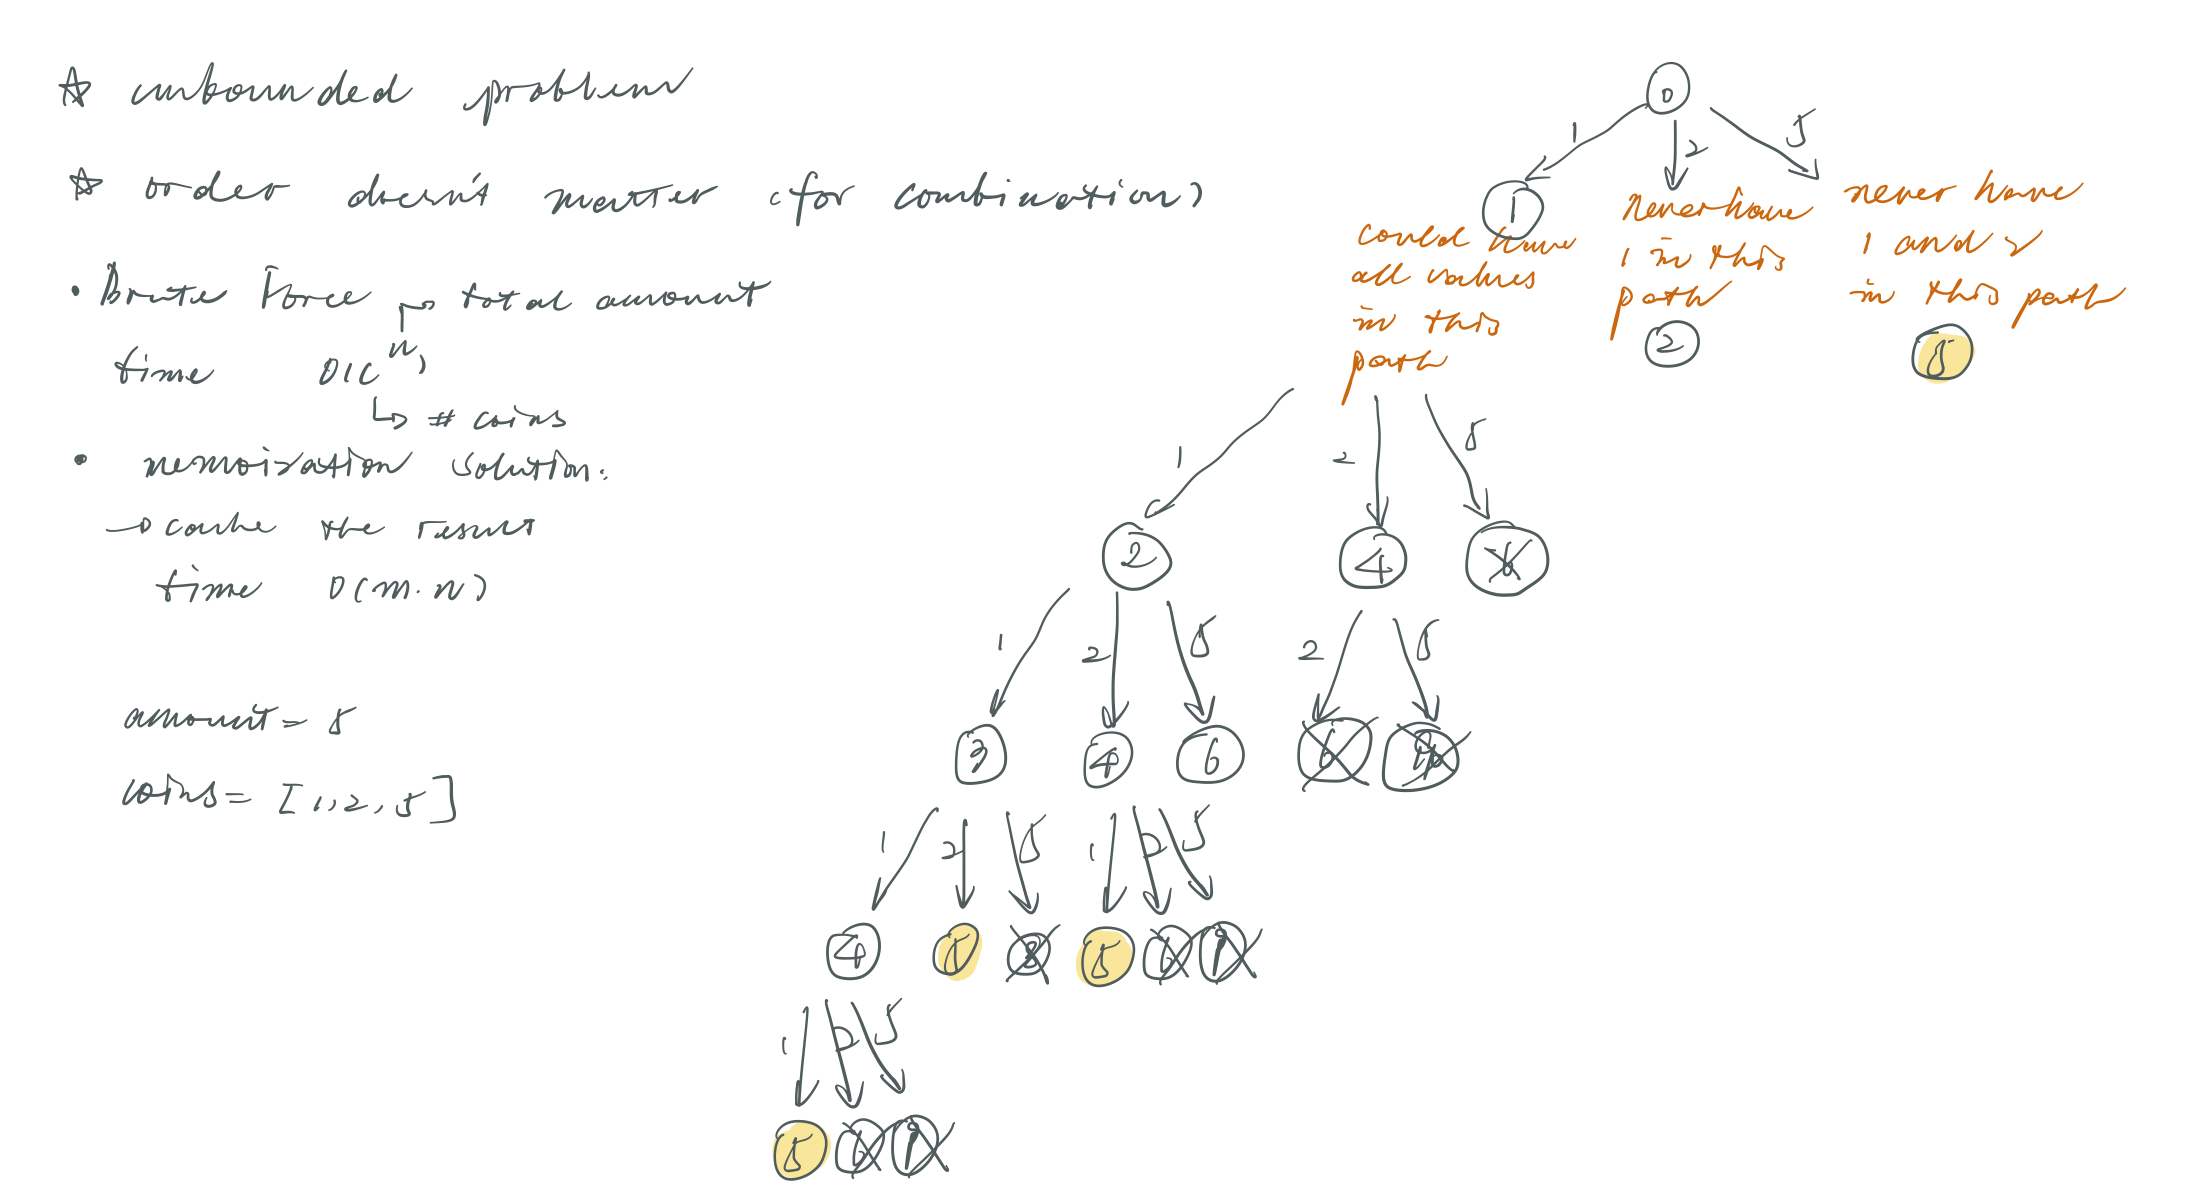 ☆ unbounded problem
☆ order doesn't matter (for combination)
• Brute Force → total amount
time O(C^n)
↳ # coins
• memoization solution:
→ cache the result
time O(m·n)
amount = 5
coins = [1, 2, 5]
0
1 2 5
1
could have
all values
in this
path
never have
1 in this
path
2
never have
1 and 2
in this path
5
1 2 5
2 4
1 2 5 2 5
3 4 6 6
1 2 5 1 2 5
4 5 8 5 6
1 2 5
5 6